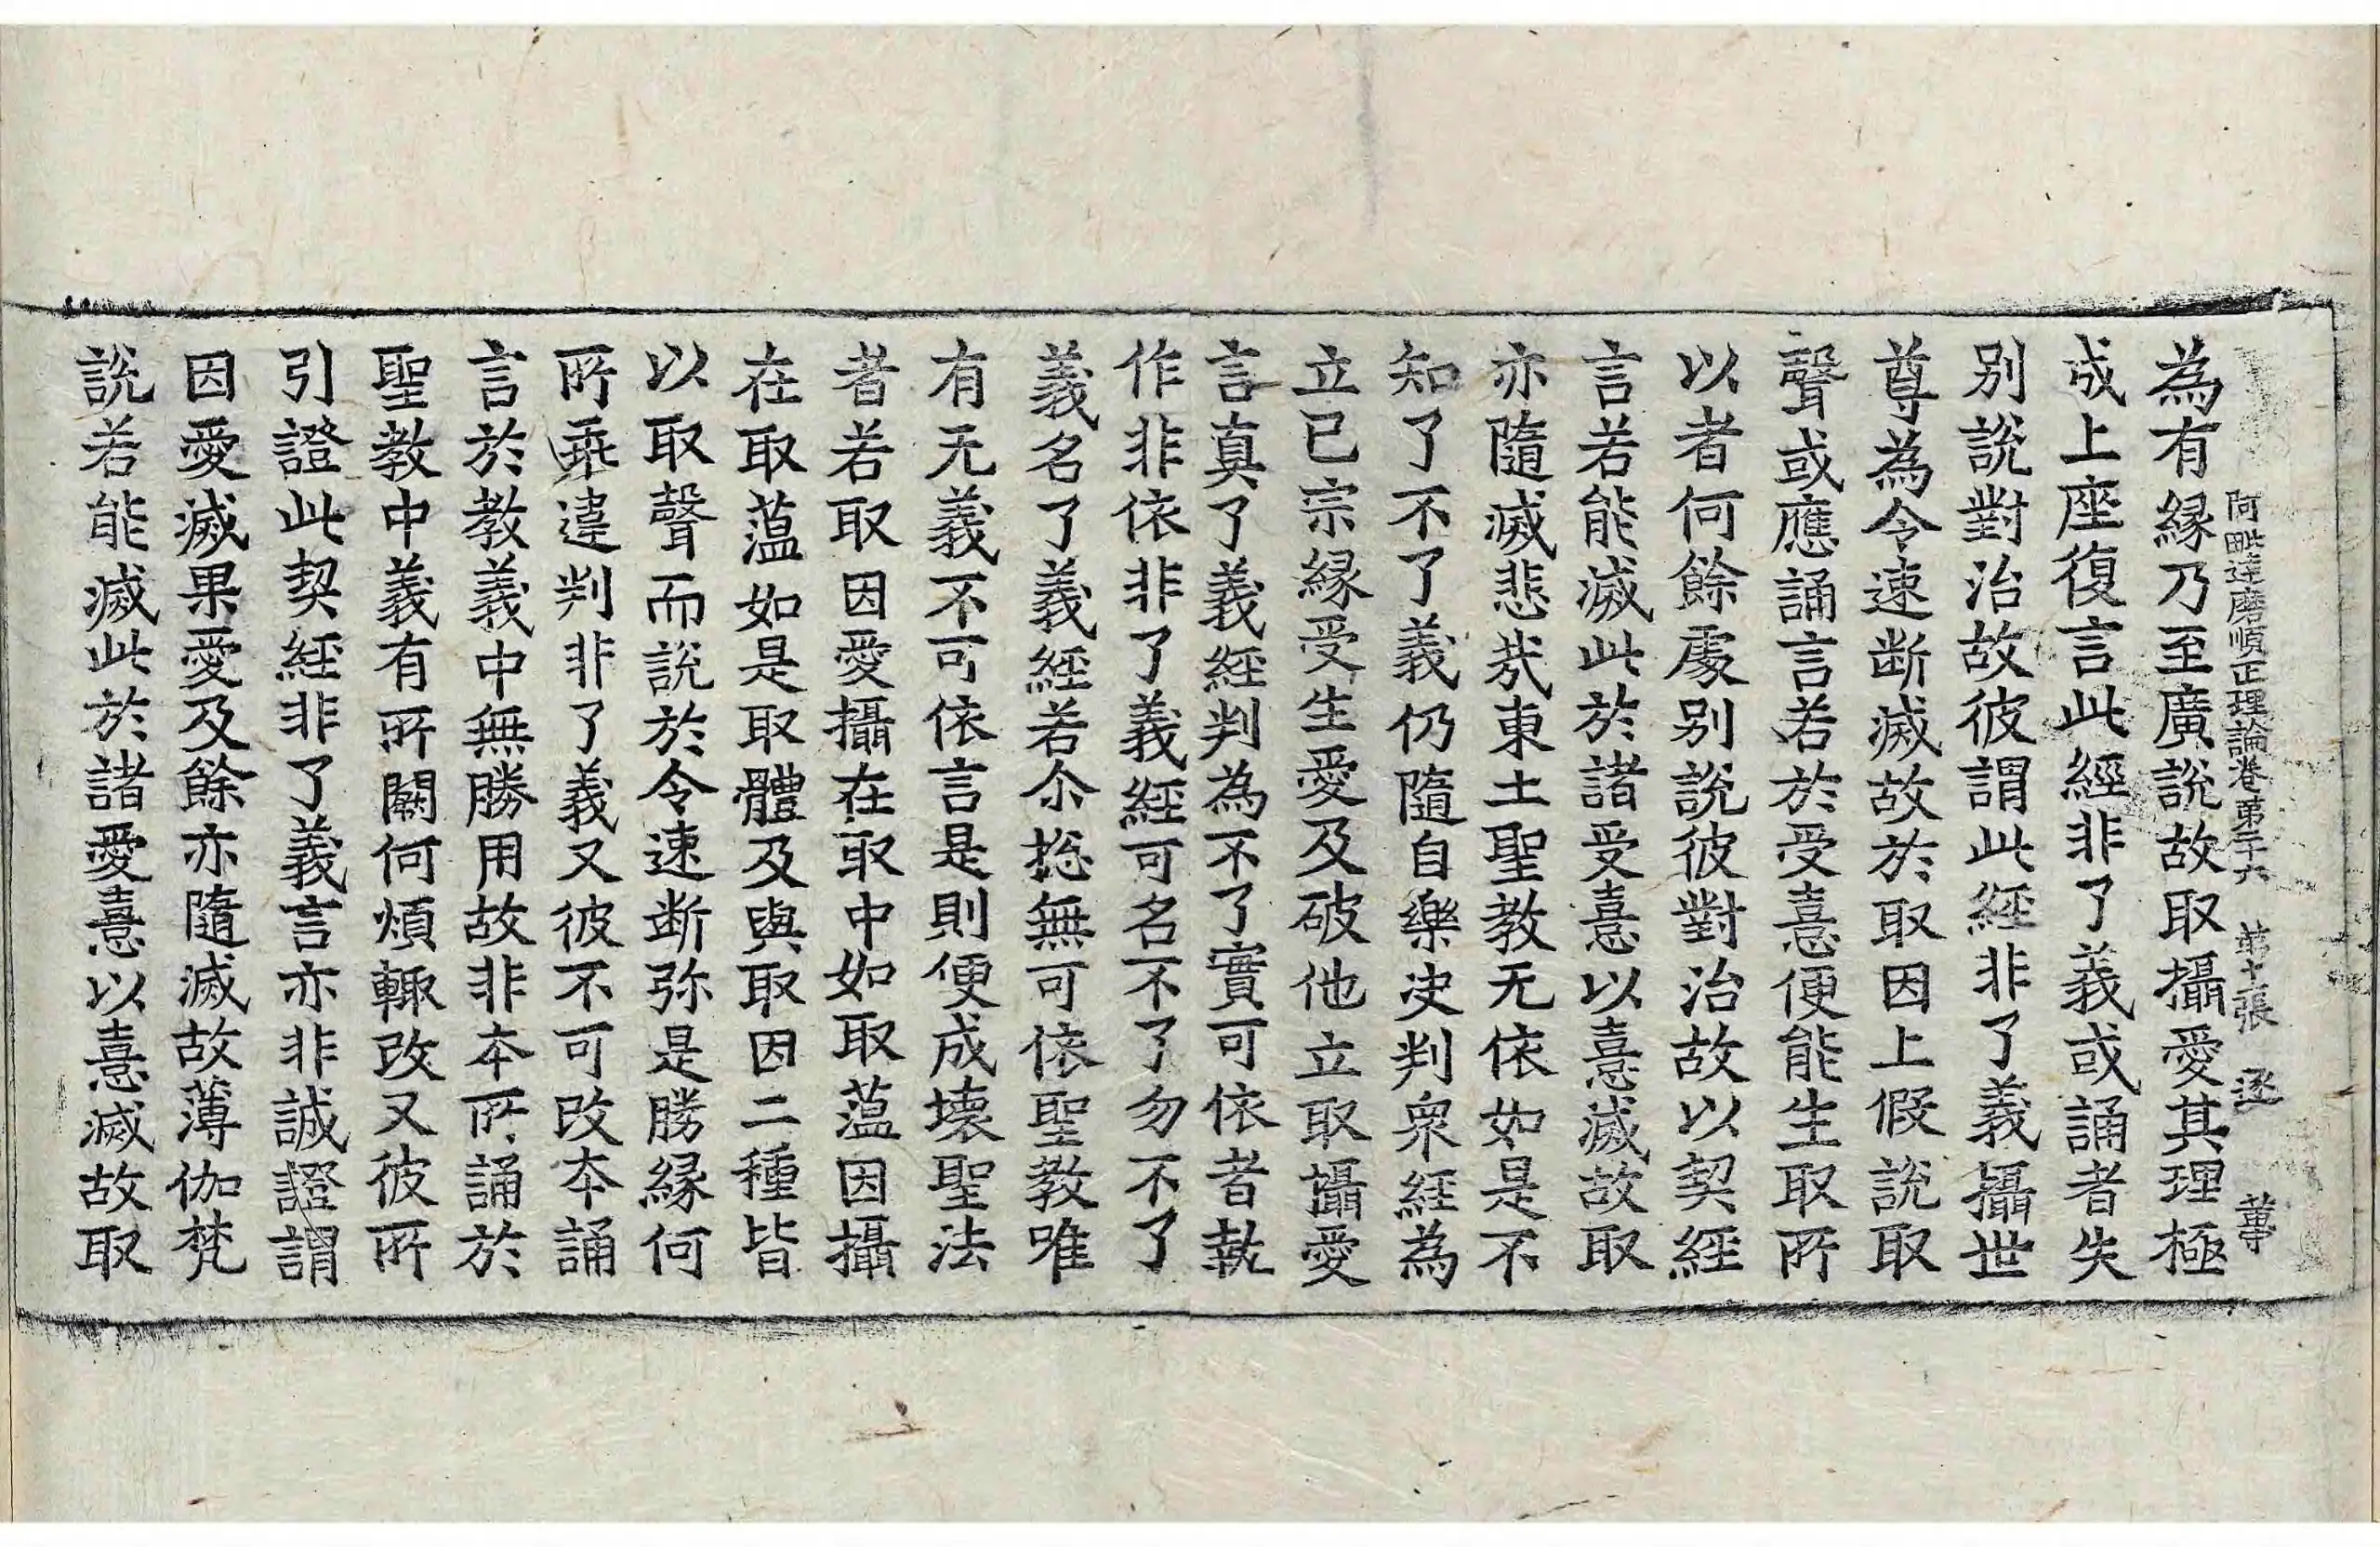 阿毗達磨順正理論卷第二十六 第十張 逐
為有緣乃至廣說故取攝愛其理極
成上座復言此經非了義或誦者失
別說對治故彼謂此經非了義攝世
尊為令速断滅故於取因上假說取
聲或應誦言若於受憙便能生取所
以者何餘處別說彼對治故以契經
言若能滅此於諸受憙以憙滅故取
亦隨滅悲哉東土聖教无依如是不
知了不了義仍隨自樂决判衆經為
立已宗緣受生愛及破他立取攝愛
言真了義經判為不了實可依者執
作非依非了義經可名不了勿不了
義名了義經若尒揔無可依聖教唯
有无義不可依言是則便成壞聖法
者若取因愛攝在取中如取薀因攝
在取薀如是取體及與取因二種皆
以取聲而說於令速断弥是勝緣何
所乖違判非了義又彼不可改本誦
言於教義中無勝用故非本所誦於
聖教中義有所闕何煩輙改又彼所
引證此契經非了義言亦非誠證謂
因愛滅果愛及餘亦隨滅故薄伽梵
說若能滅此於諸愛憙以憙滅故取